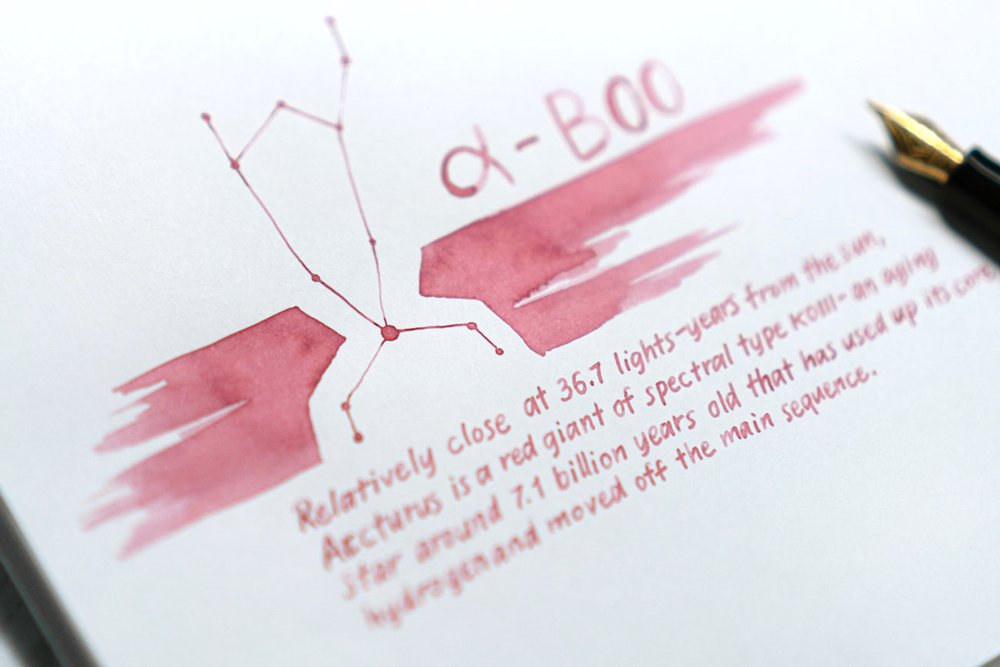 α-BOO
Relatively close at 36.7 lights-years from the sun,
Arcturus is a red giant of spectral type KOIII- an aging
star around 7.1 billion years old that has used up its core
hydrogen and moved off the main sequence.